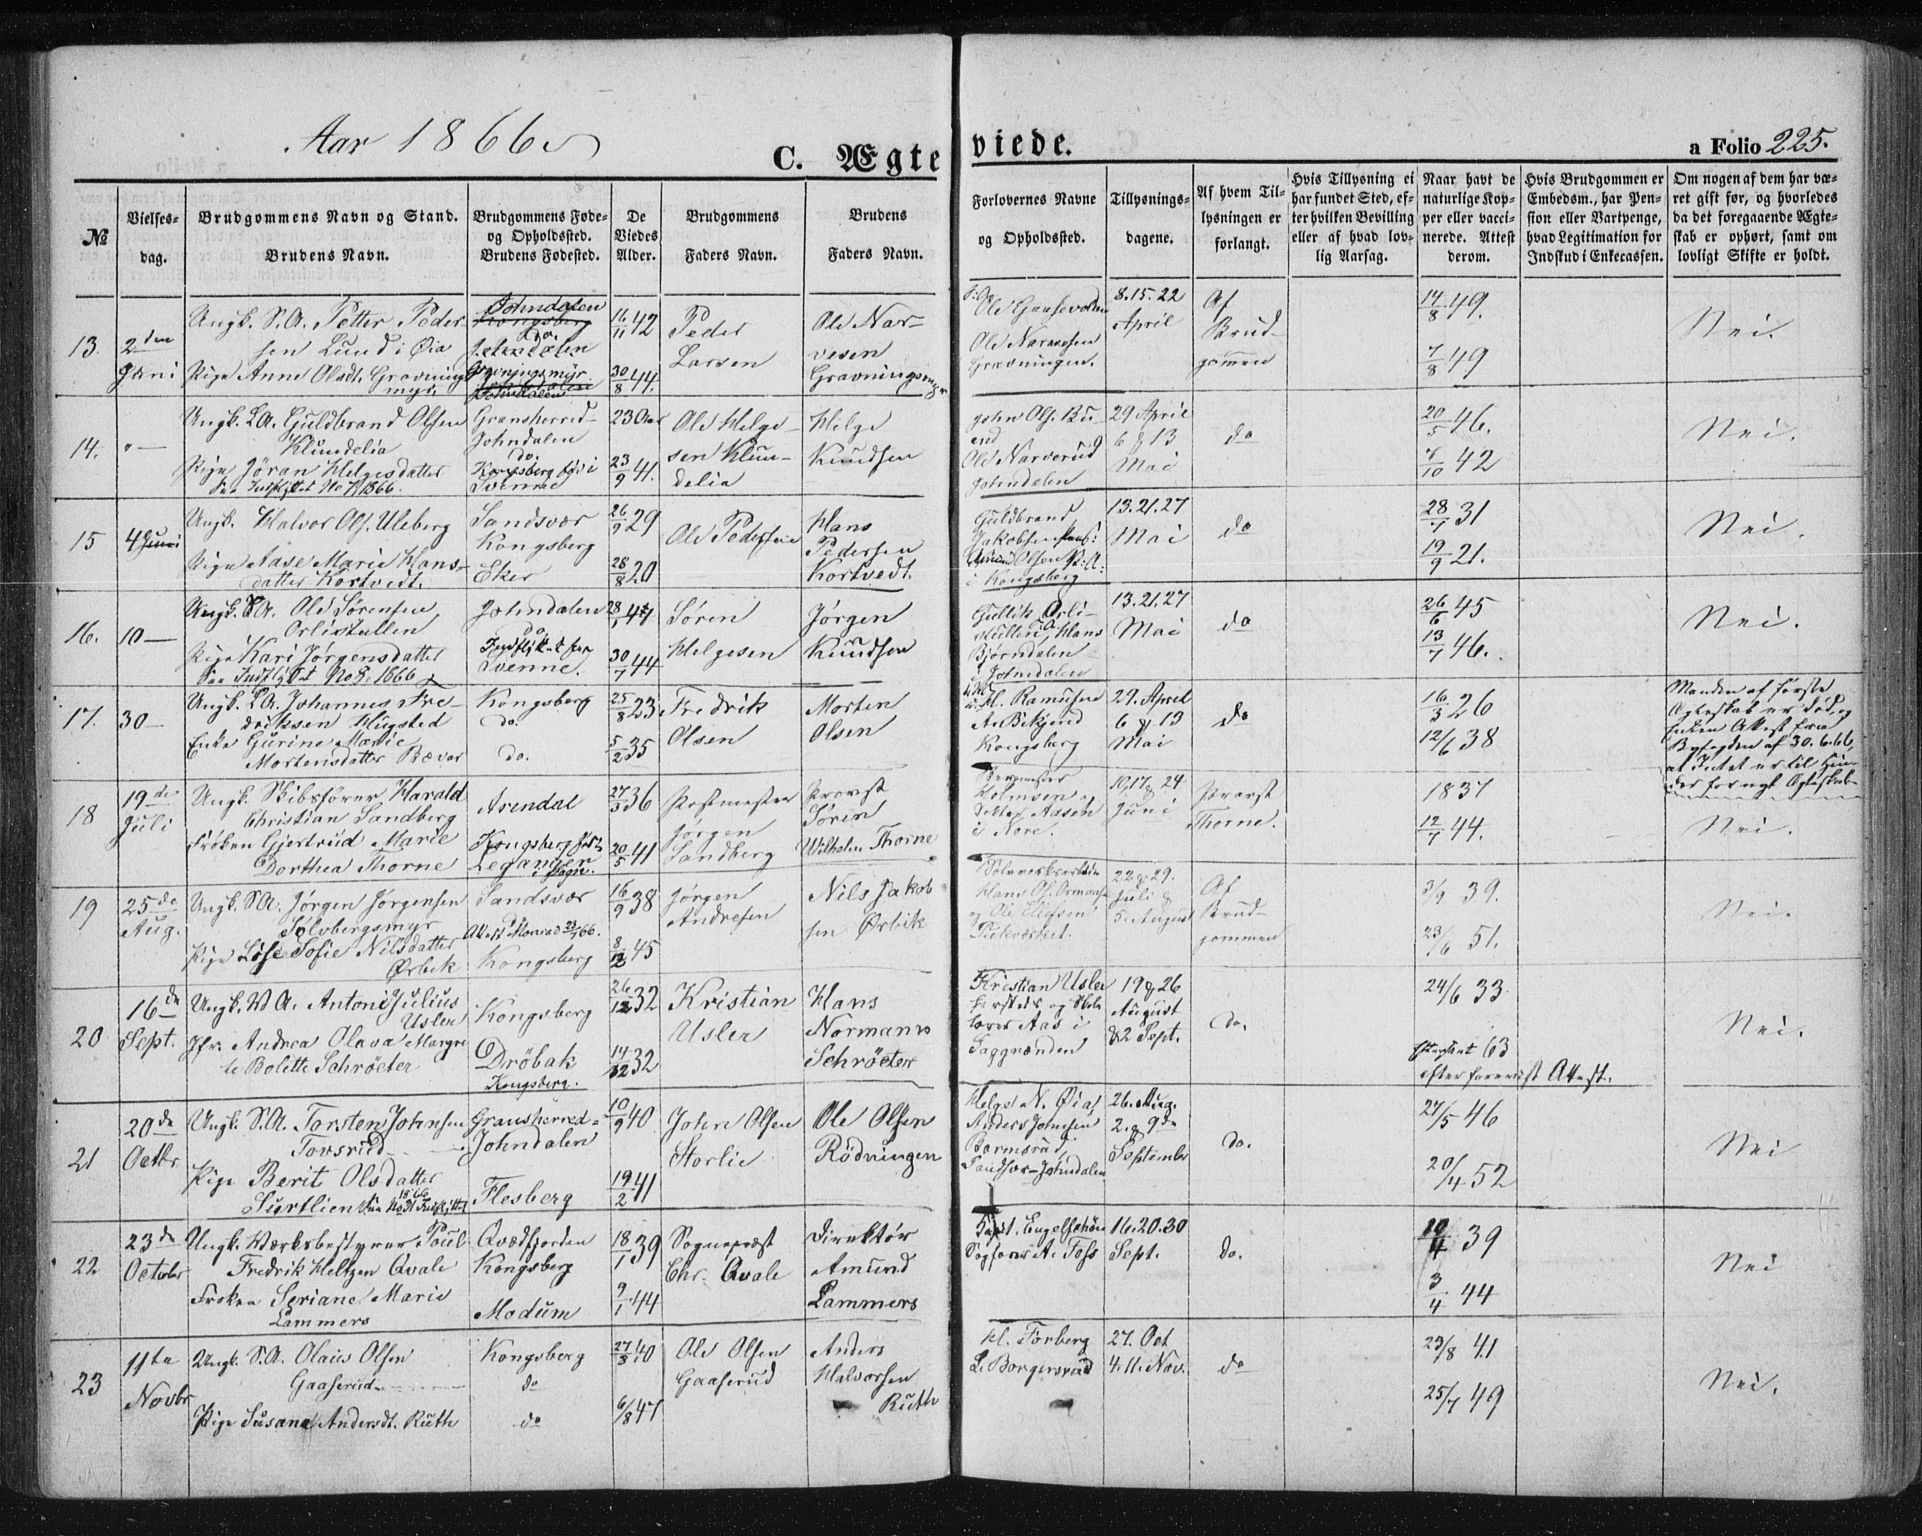 Aar 1866
C. Ægteviede.
a Folio 225.
№
Vielsesdag.
Brudgommens Navn og Stand.
Brudens Navn.
Brudgommens Føde- og Opholdssted.
Brudens Fødested.
De Viedes Alder.
Brudgommens Faders Navn.
Brudens Faders Navn.
Forlovernes Navne og Opholdssted.
Tillysningsdagene.
Af hvem Tillysningen er forlangt.
Hvis Tillysning ei har fundet Sted, efter hvilken Bevilling eller af hvad lovlig Aarsag.
Naar havt de naturlige Kopper eller vaccinerede. Attest derom.
Hvis Brudgommen er Embedsm., har Pension eller Vartpenge, hvad Legitimation for Indskud i Enkecassen.
Om nogen af dem har været gift før, og hvorledes da det foregaaende Ægteskab er ophørt, samt om lovligt Skifte er holdt.
13. 2den Juni
Ungk. S.A. Petter Pedersen Lund i Øia
Pige Anne Olsdt. Gravningsmyr.
Johndalen
Kongsberg
do.
Johndalen
Gravningsmyr.
Johndalen
16/11 42
30/8 44.
Peder Larsen
Ole Narvesen Gravningsmyr
Ole Narvesen
Gravningen.
8. 15. 22 April
Af Brudgommen
14/8 49.
7/8 49
Nei.
14. "—
Ungk. S.A. Guldbrand Olsen Klundelia
Pige Jøran Helgesdatter
Gransherred
Johndalen
do.
Kongsberg
Svenne
23 Aar
23/9 41.
Ole Helgesen Klundelia
Helge Knudsen
John Ols. Ruend
Ole Narverud
Johndalen
29 April 6 & 13 Mai
do
20/5 46.
42
Nei.
15 4 Juni
Ungk. Halvor Ols. Uleberg
Pige Aase Marie Hansdatter Kortvedt.
Sandsvær
Kongsberg
Eker
26/9 29
28/8 20
Ole Pedersen
Hans Pedersen Kortvedt.
Guldbrand Jakobsen
i Kongsberg
13. 21. 27 Mai
do
28/7 31
19/9 21.
Nei.
16. 10—
Ungk. S.A. Ole Sørensen Orlistullen
Pige Kari Jørgensdatter
Johndalen
do
Svenne.
28/1 44
30/7 44
Søren Helgesen
Jørgen Knudsen
Gullik Orlistullen, Hans Bjørndalen i Johndalen
13. 21. 27 Mai
do
26/6 45
13/7 46.
Nei.
17. 30—
Ungk. S.A. Johannes Fredriksen Hugsted
Enke Gurine Marie Mortensdatter Bæver
Kongsberg
do.
do.
25/8 23
5/2 35
Fredrik Olsen
Morten Olsen
Ramusen
Kongsberg
29. April 6 & 13 Mai
do
16/3 26
12/6 38
Manden af første Ægteskab er død, og Enken Attest fra Byfogden af 30.6.66, at Intet er til Hinder for nyt Ægteskab
18 19de Juli
Ungk. Skibsfører Harald Christian Sandberg
Frøken Gjertrud Marie Dorthea Thorne
Arendal
Kongsberg
Leganger
27/3 36
20/5 41
Postmester Jørgen Sandberg
Provst Søren Wilhelm Thorne
Holmsen
i Nore.
10, 17 & 24 Juni
Provst Thorne.
1837
12/7 44.
Nei.
19 25de Aug.
Ungk. S.A. Jørgen Jørgensen Sølvbergsmyr
Pige Lise Sofie Nilsdatter Ørbek
Sandsvær
Kongsberg
16/9 38
8/12 45
Jørgen Andresen
Nils Jakobsen Ørbik
22 & 29. Juli & 5. August
Af Brudgommen
3/9 39.
23/6 51.
Nei.
20 16de Sept.
Ungk. V.A. Anton Julius Usler
Jfr. Andrea Olava Margrete Bolette Schrøeter
Kongsberg
Drøbak
Kongsberg.
26/12 32
14/12 32
Kristian Usler
Hans Normann Schrøeter
Kristian Usler
Aas i Saggrænden
19 & 26 August & 2 Sept.
do.
24/6 33.
63
efter forevist Attest.
Nei.
21 20de Octbr
Ungk. S.A. Torsten Johnsen Tovsrud
Pige Berit Olsdatter Surtlien
Gransherred=Johndalen
Flesberg
10/9 40
19/2 41
John Olsen Storlie
Ole Olsen Rødningen
Helge N. Øia,
Anders Johnsen
Sandsv—Johndalen
26. Aug. 2. & 9de September
do.
27/5 46
20/4 52
Nei
22 23de Octobr
Ungk. Værksbestyrer Poul Fredrik Heltzen Qvale
Frøken Seriane Marie Lammers
Qvædfjorden
Kongsberg
Modum
18/1 39
9/1 44
Sognepræst Chr. Qvale
Direktør Amund Lammers
Kapt. Engelschøn
Sagfører A. Foss
16. 20. 30 Sept.
do.
10/4 39
3/4 44
Nei
23 11te Novbr
Ungk. S.A. Olaus Olsen Gaaserud
Pige Susane Andersdt. Ruth
Kongsberg
do
do
27/3 40
6/8 47
Ole Olsen Gaaserud
Anders Halvorsen Ruth
Kl. Forberg
L. Borgersrud
27. Oct 4. 11. Nov.
do
23/8 41
25/7 49
Nei.